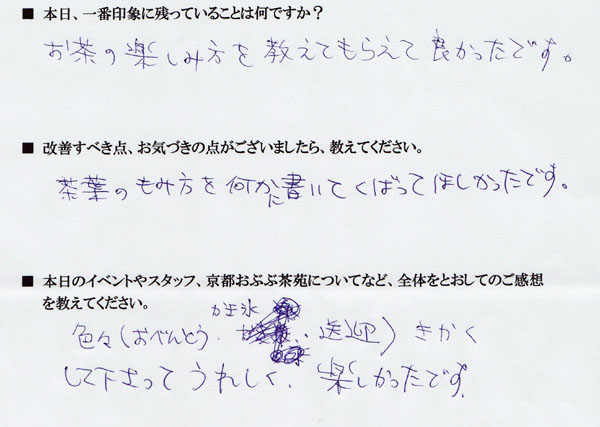 ■ 本日、一番印象に残っていることは何ですか？
お茶の楽しみ方を教えてもらえて良かったです。
■ 改善すべき点、お気づきの点がございましたら、教えてください。
茶葉のもみ方を何かに書いてくばってほしかったです。
■ 本日のイベントやスタッフ、京都おぶぶ茶苑についてなど、全体をとおしてのご感想
を教えてください。
かき氷
色々(おべんとう、送迎)きかく
して下さってうれしく、楽しかったです。